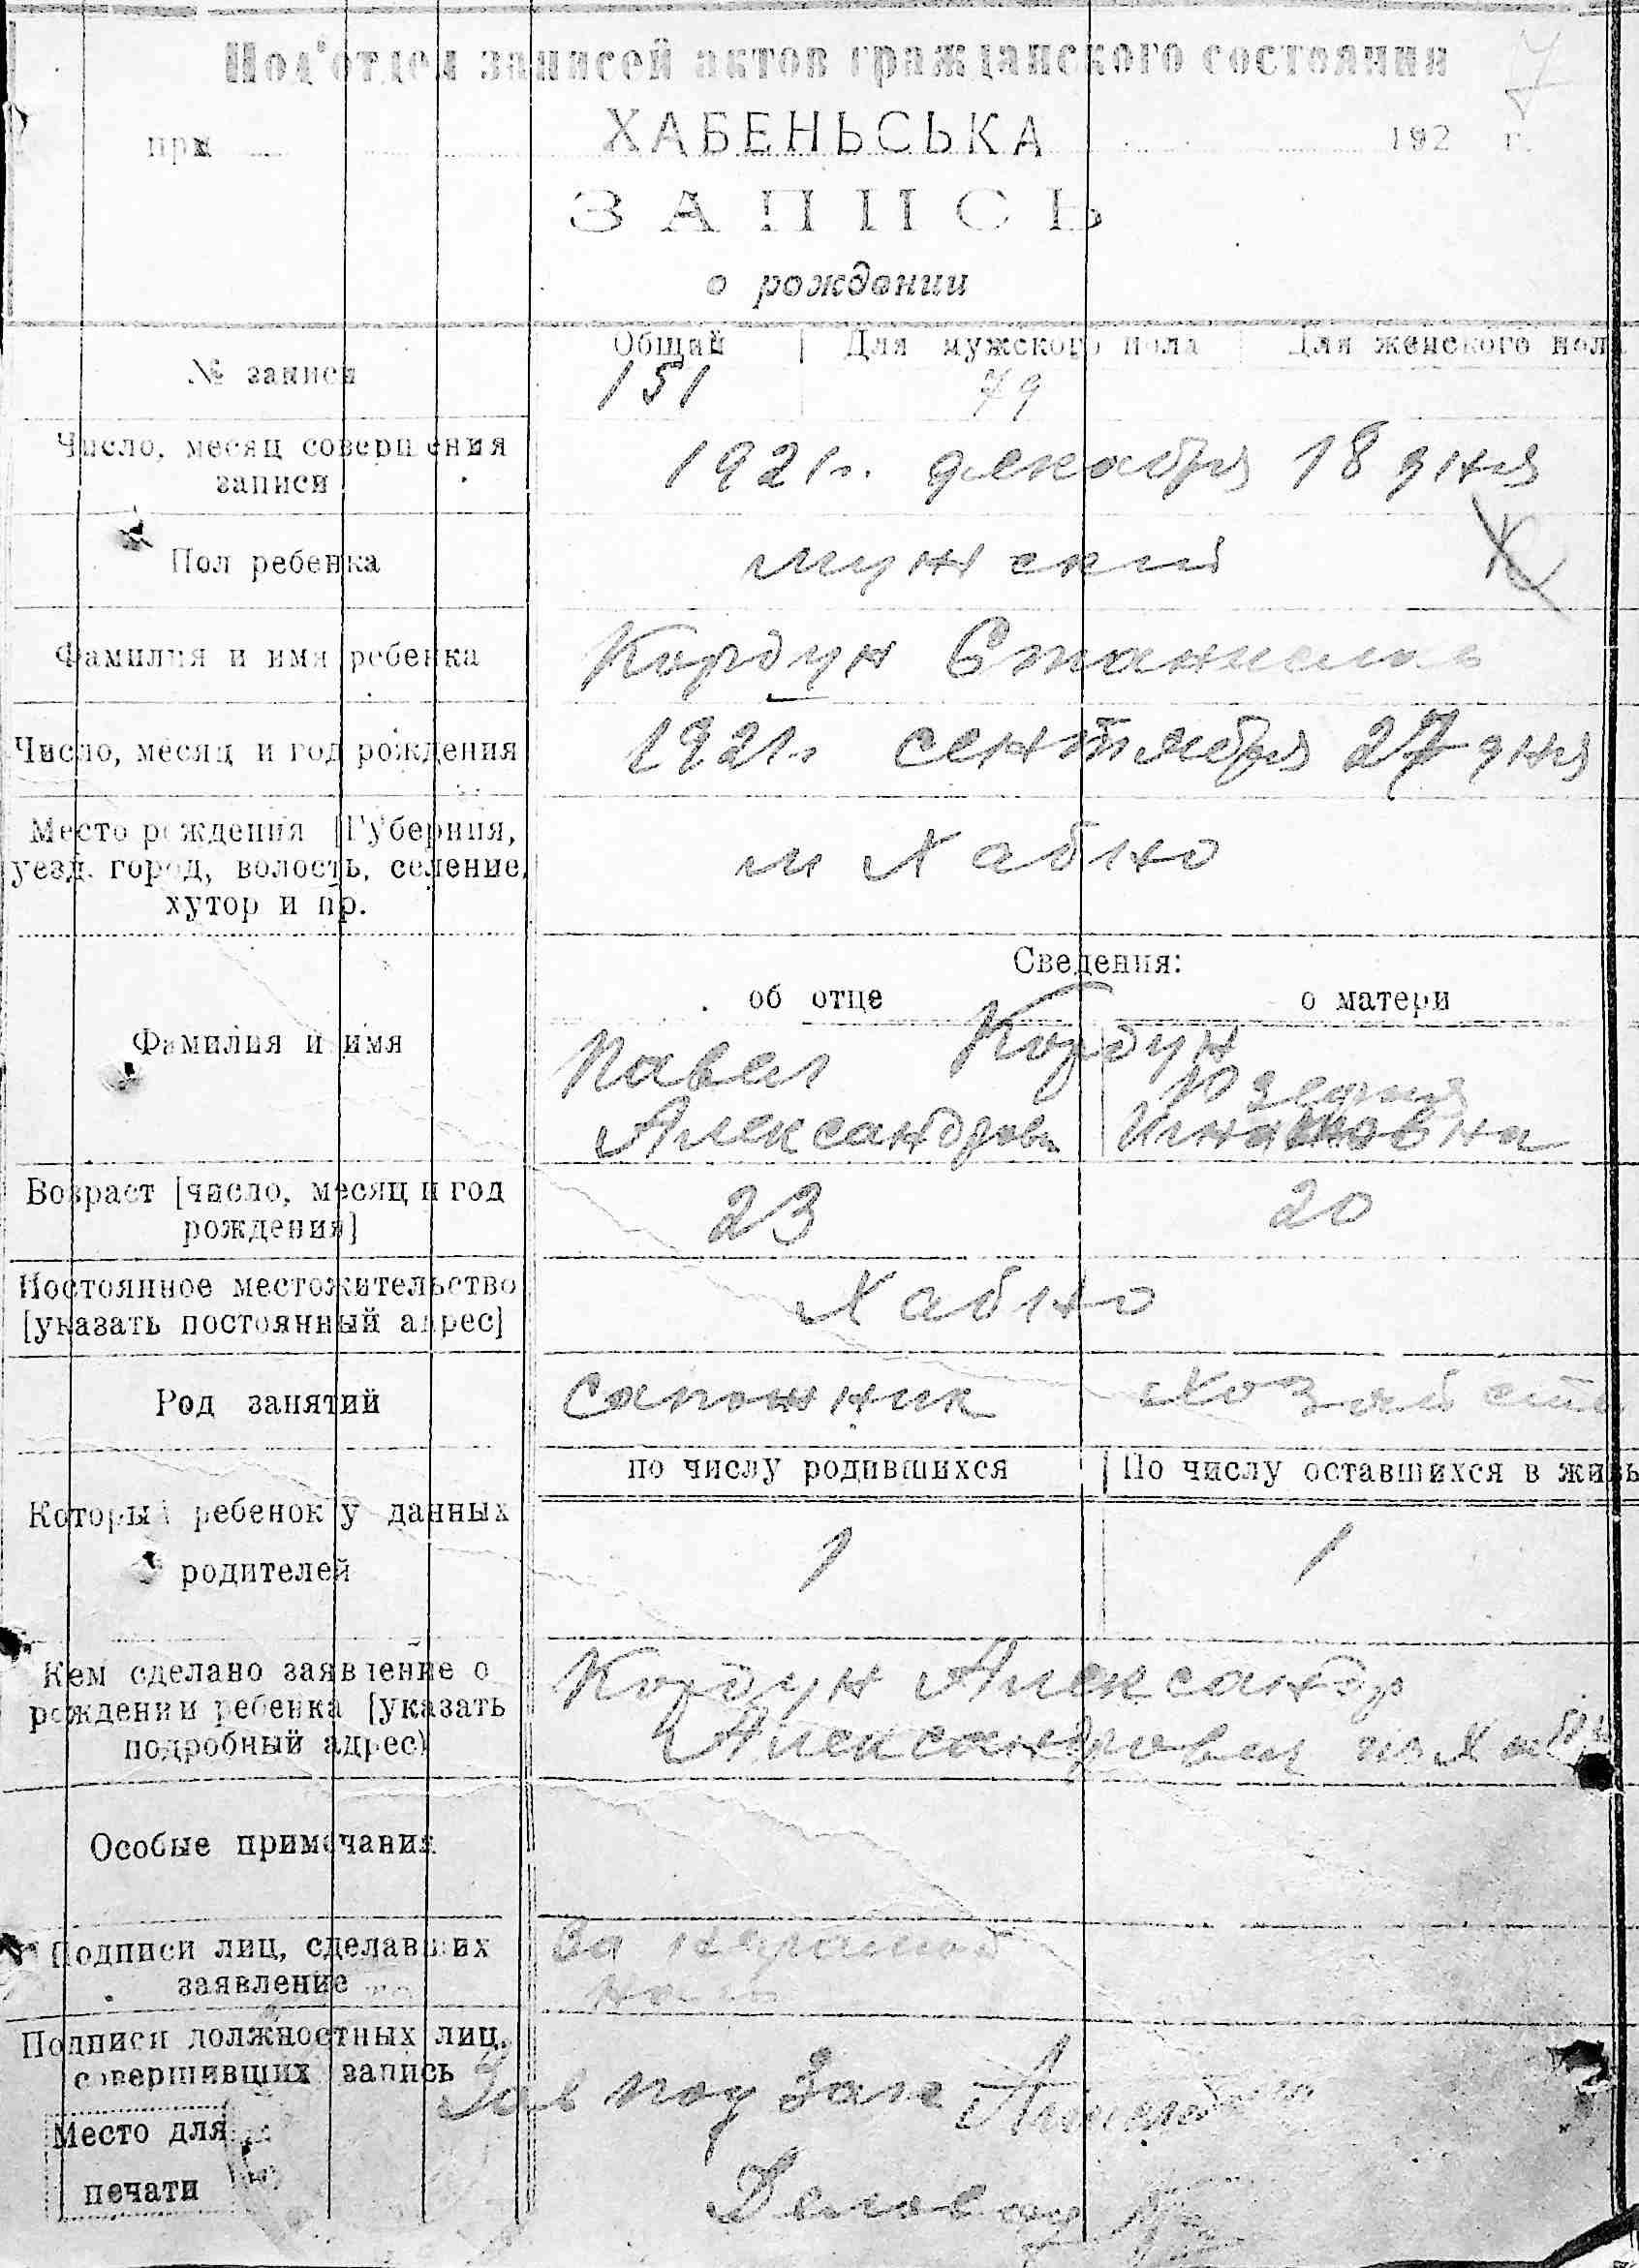 Под'отдел записей актов гражданского состояния
при ХАБЕНЬСЬКА 192 г.
ЗАПИСЬ
о рождении
№ записи
Общий Для мужского пола Для женского пола
151 79
Число, месяц совершения
записи
1921 г. декабря 18 дня
Пол ребенка мужский
Фамилия и имя ребенка Кордун Станислав
Число, месяц и год рождения 1921 г. сентября 27 дня
Место рождения [Губерния,
уезд, город, волость, селение,
хутор и пр.
м Хабно
Сведения:
об отце о матери
Фамилия и имя
Кордун
Павел
Александров Игнатовна
Возраст [число, месяц и год
рождения]
23 20
Постоянное местожительство
[указать постоянный адрес]
Хабно
Род занятий сапожник
по числу родившихся По числу оставшихся в живых
Который ребенок у данных
родителей
1 1
Кем сделано заявление о
рождении ребенка [указать
подробный адрес)
Кордун Александр
Александрович из
Особые примечания
Подписи лиц, сделавших
заявление
За
Подписи должностных лиц,
совершивших запись
Зав под Заге
Место для
печати
Делов